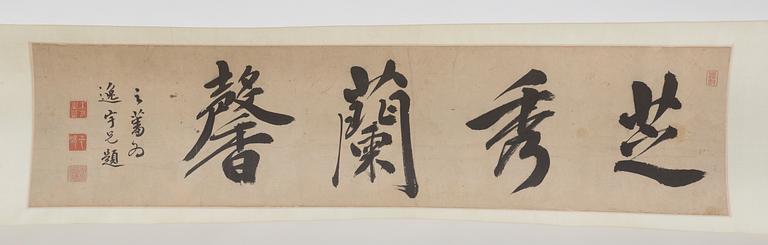 芝秀蘭馨
之蕃為
逸宇兄題